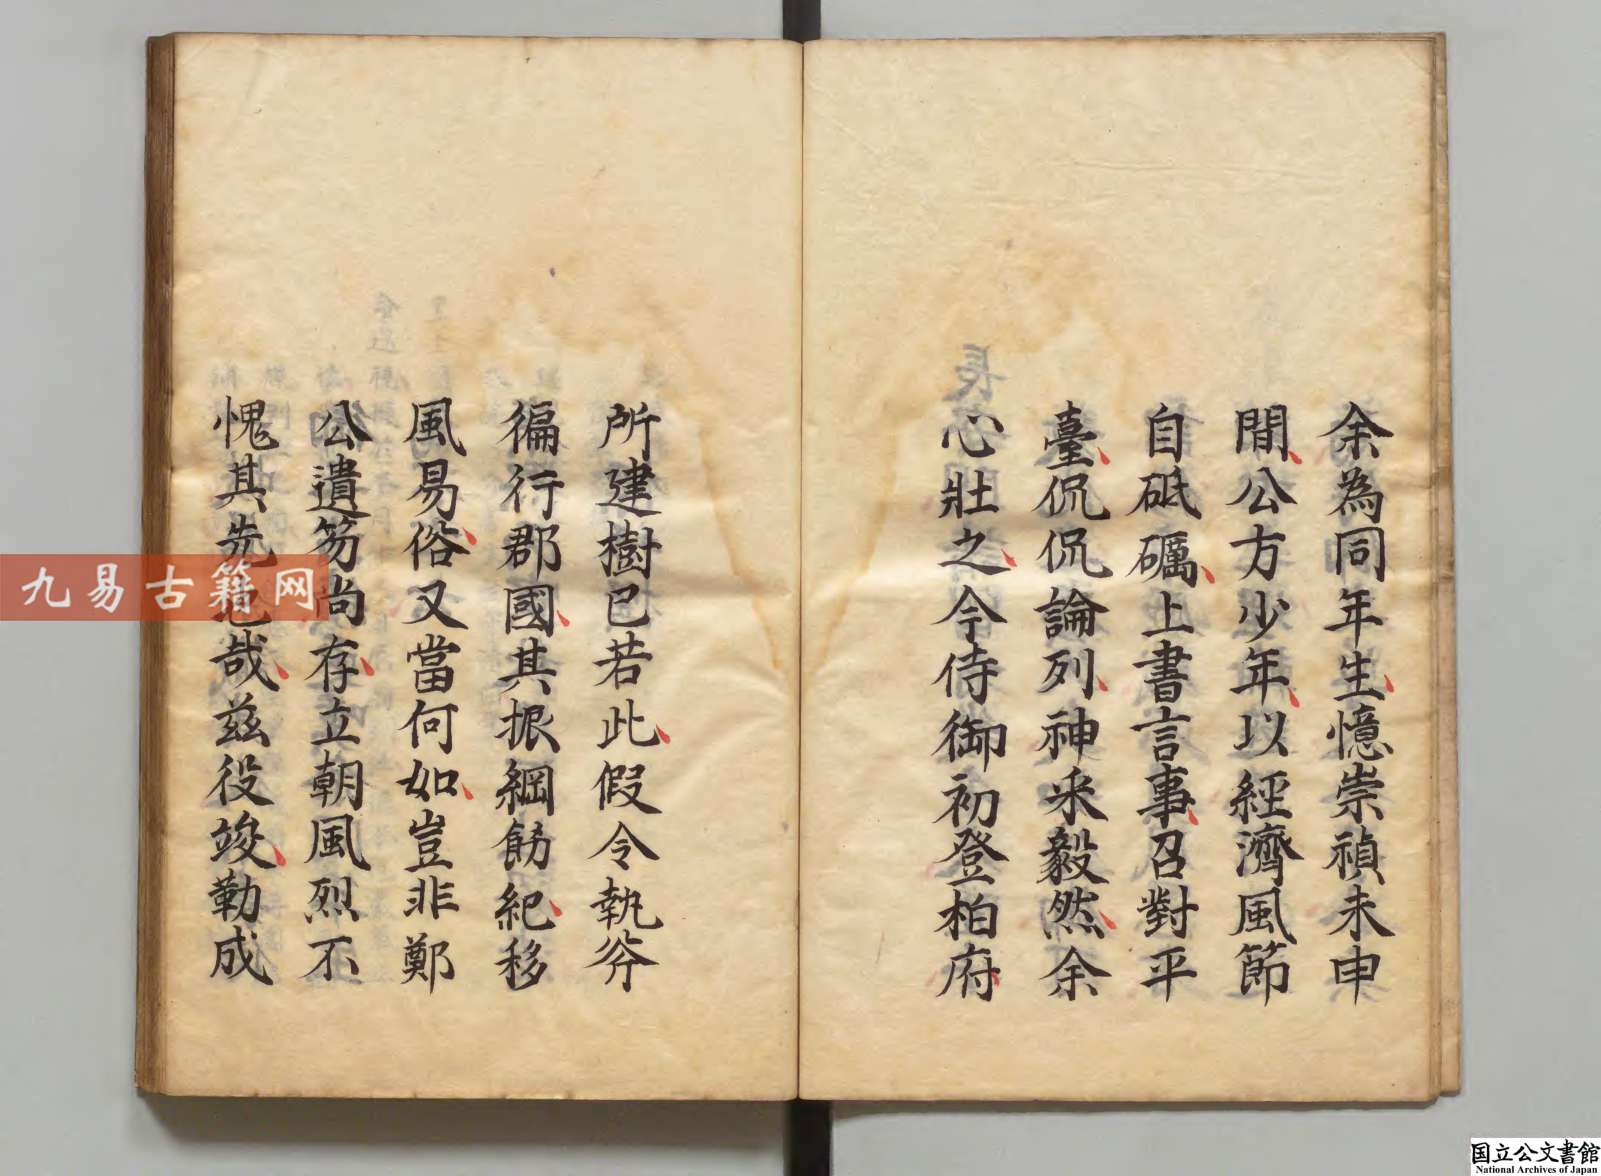 余為同年生憶崇禎未申
間公方少年以經濟風節
自砥礪上書言事召對平
臺侃侃論列神采毅然余
心壯之今侍御初登柏府
所建樹已若此假令執
徧行郡國其振綱飭紀移
風易俗又當何如豈非鄭
公遺笏尚存立朝風烈不
愧其先也哉茲役竣勒成
九易古籍网
国立公文書館
National Archives of Japan